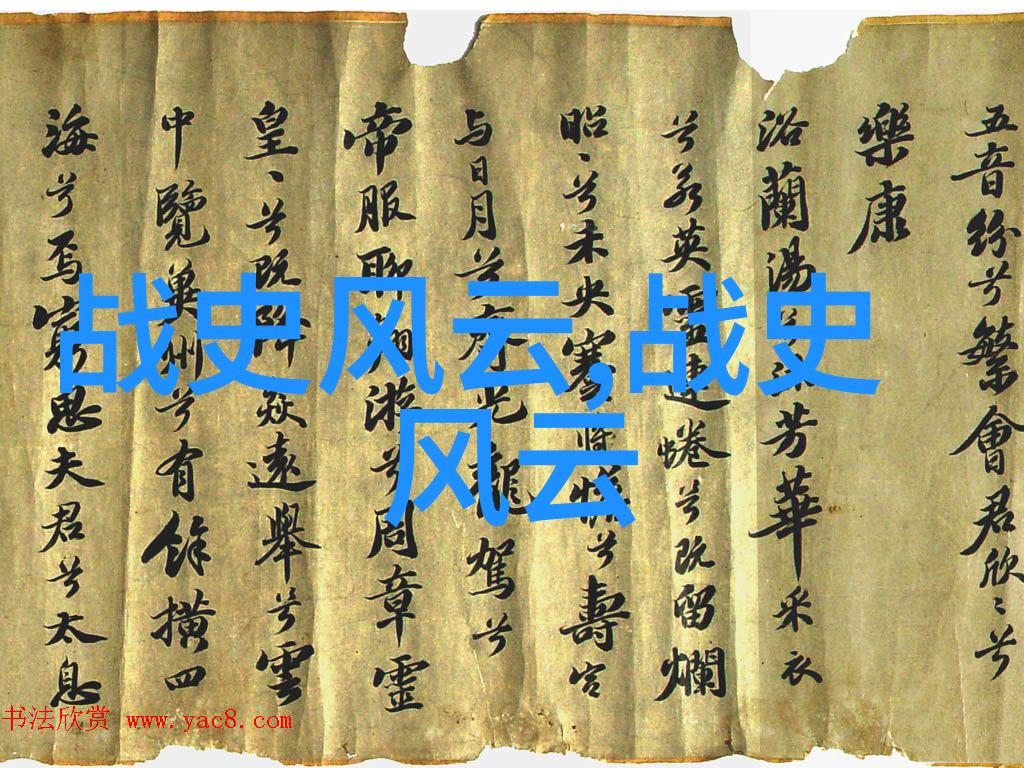 五音紛兮繁會君欣、兮
樂康
浴蘭湯兮沐芳華采衣
兮若英靈連蜷兮既留爛
昭、兮未央蹇將憺兮壽宮
与日月兮齊光龍駕兮
帝服聊翱遊兮周章靈
皇、兮既降猋遠舉兮雲
中覽冀州兮有餘橫四
海兮焉窮思夫君兮太息
战史风云,战史
风云
书法欣赏 www.yac8.com